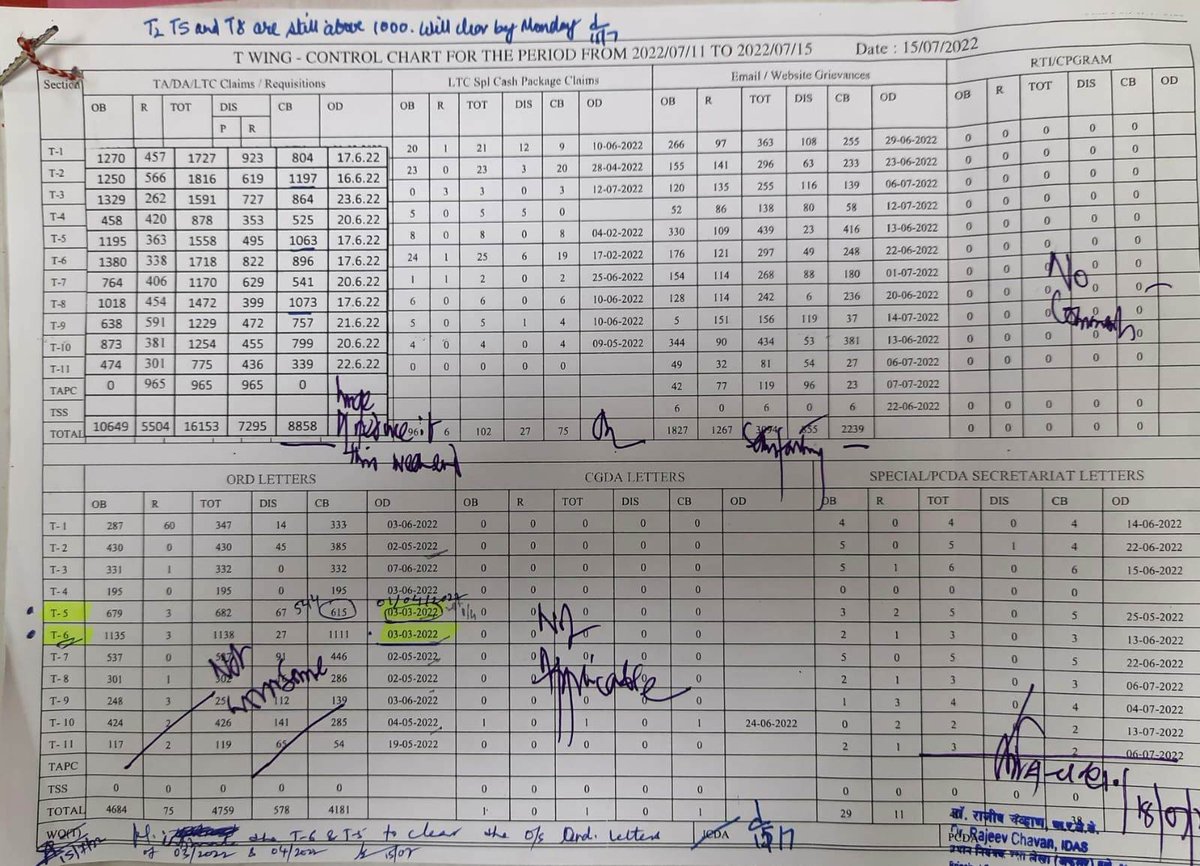 T2 T5 and T8 are still above 1000. Will clear by Monday
15/7
T WING - CONTROL CHART FOR THE PERIOD FROM 2022/07/11 TO 2022/07/15 Date : 15/07/2022
Section TA/DA/LTC Claims / Requisitions LTC Spl Cash Package Claims Email / Website Grievances RTI/CPGRAM
OB R TOT DIS CB OD OB R TOT DIS CB OD OB R TOT DIS CB OD OB R TOT DIS CB OD
P R
T-1 1270 457 1727 923 804 17.6.22 20 1 21 12 9 10-06-2022 266 97 363 108 255 29-06-2022 0 0 0 0 0
T-2 1250 566 1816 619 1197 16.6.22 23 0 23 3 20 28-04-2022 155 141 296 63 233 23-06-2022 0 0 0 0 0
T-3 1329 262 1591 727 864 23.6.22 0 3 3 0 3 12-07-2022 120 135 255 116 139 06-07-2022 0 0 0 0 0
T-4 458 420 878 353 525 20.6.22 5 0 5 5 0 52 86 138 80 58 12-07-2022 0 0 0 0 0
T-5 1195 363 1558 495 1063 17.6.22 8 0 8 0 8 04-02-2022 330 109 439 23 416 13-06-2022 0 0 0 0 0
T-6 1380 338 1718 822 896 17.6.22 24 1 25 6 19 17-02-2022 176 121 297 49 248 22-06-2022 0 0 0 0 0
T-7 764 406 1170 629 541 20.6.22 1 1 2 0 2 25-06-2022 154 114 268 88 180 01-07-2022 0 0 0 0 0
T-8 1018 454 1472 399 1073 17.6.22 6 0 6 0 6 10-06-2022 128 114 242 6 236 20-06-2022 0 0 0 0 0
T-9 638 591 1229 472 757 21.6.22 5 0 5 1 4 10-06-2022 5 151 156 119 37 14-07-2022 0 0 0 0 0
T-10 873 381 1254 455 799 20.6.22 4 0 4 0 4 09-05-2022 344 90 434 53 381 13-06-2022 0 0 0 0 0
T-11 474 301 775 436 339 22.6.22 0 0 0 0 0 49 32 81 54 27 06-07-2022 0 0 0 0 0
TAPC 0 965 965 965 0 42 77 119 96 23 07-07-2022
TSS 6 0 6 0 6 22-06-2022 0 0 0 0 0
TOTAL 10649 5504 16153 7295 8858 96 6 102 27 75 1827 1267 855 2239 0 0 0 0 0
No
Comments
this weekend
Satisfactory
ORD LETTERS CGDA LETTERS SPECIAL/PCDA SECRETARIAT LETTERS
OB R TOT DIS CB OD OB R TOT DIS CB OD OB R TOT DIS CB OD
T-1 287 60 347 14 333 03-06-2022 0 0 0 0 0 4 0 4 0 4 14-06-2022
T-2 430 0 430 45 385 02-05-2022 0 0 0 0 0 5 0 5 1 4 22-06-2022
T-3 331 1 332 0 332 07-06-2022 0 0 0 0 0 5 1 6 0 6 15-06-2022
T-4 195 0 195 0 195 03-06-2022 0 0 0 0 0 0 0 0 0 0
T-5 679 3 682 67 544 615 01/04/2022 03-03-2022 0 0 0 0 0 3 2 5 0 5 25-05-2022
T-6 1135 3 1138 27 1111 03-03-2022 0 0 0 0 2 1 3 0 3 13-06-2022
T-7 537 0 537 91 446 02-05-2022 0 0 0 0 0 5 0 5 0 5 22-06-2022
T-8 301 1 302 286 02-05-2022 0 0 0 0 2 1 3 0 3 06-07-2022
T-9 248 3 251 112 139 03-06-2022 0 0 0 0 1 3 4 0 4 04-07-2022
T-10 424 2 426 141 285 04-05-2022 1 0 1 0 1 24-06-2022 0 2 2 2 13-07-2022
T-11 117 2 119 65 54 19-05-2022 0 0 0 0 0 2 1 3 2 06-07-2022
TAPC
TSS 0 0 0 0 0 0 0 0 0 0 0 0 0 0
TOTAL 4684 75 4759 578 4181 1 0 1 0 1 29 11 38
Not
Not
Applicable
WO(T) the T-6 & T-5 to clear the o/s Ord. letters
of 03/2022 & 04/2022
15/07
JCDA
15/7
18/07
डॉ. राजीव चव्हाण, भा.र.ले.से.
Dr. Rajeev Chavan, IDAS
PCDA